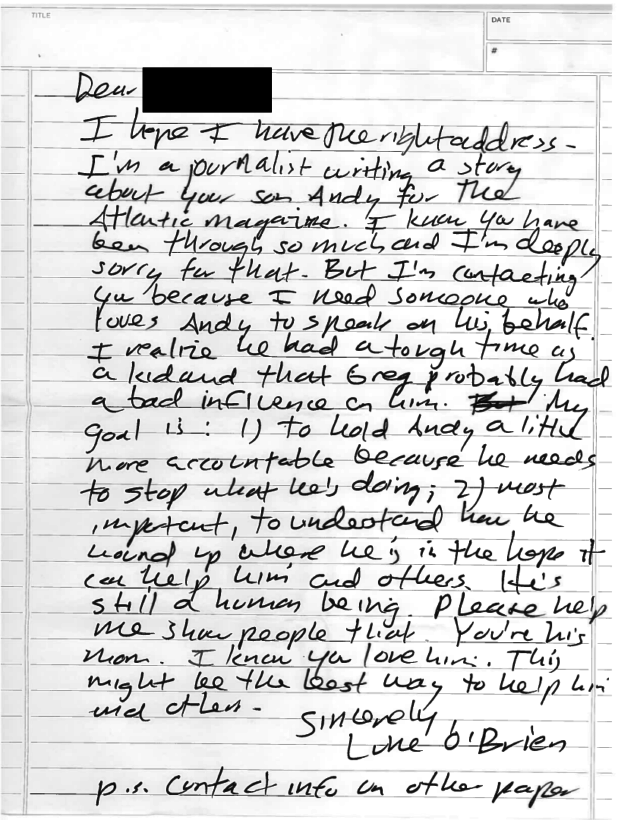 TITLE
DATE
#
Dear
I hope I have the right address -
I'm a journalist writing a story
about your son Andy for the
Atlantic magazine. I know you have
been through so much and I'm deeply
sorry for that. But I'm contacting
you because I need someone who
loves Andy to speak on his behalf.
I realize he had a tough time as
a kid and that Greg probably had
a bad influence on him. But My
goal is: 1) to hold Andy a little
more accountable because he needs
to stop what he's doing; 2) most
important, to understand how he
wound up where he is in the hope it
can help him and others. He's
still a human being. Please help
me show people that. You're his
mom. I know you love him. This
might be the best way to help him
and others -
Sincerely,
Luke O'Brien
p.s. Contact info on other paper